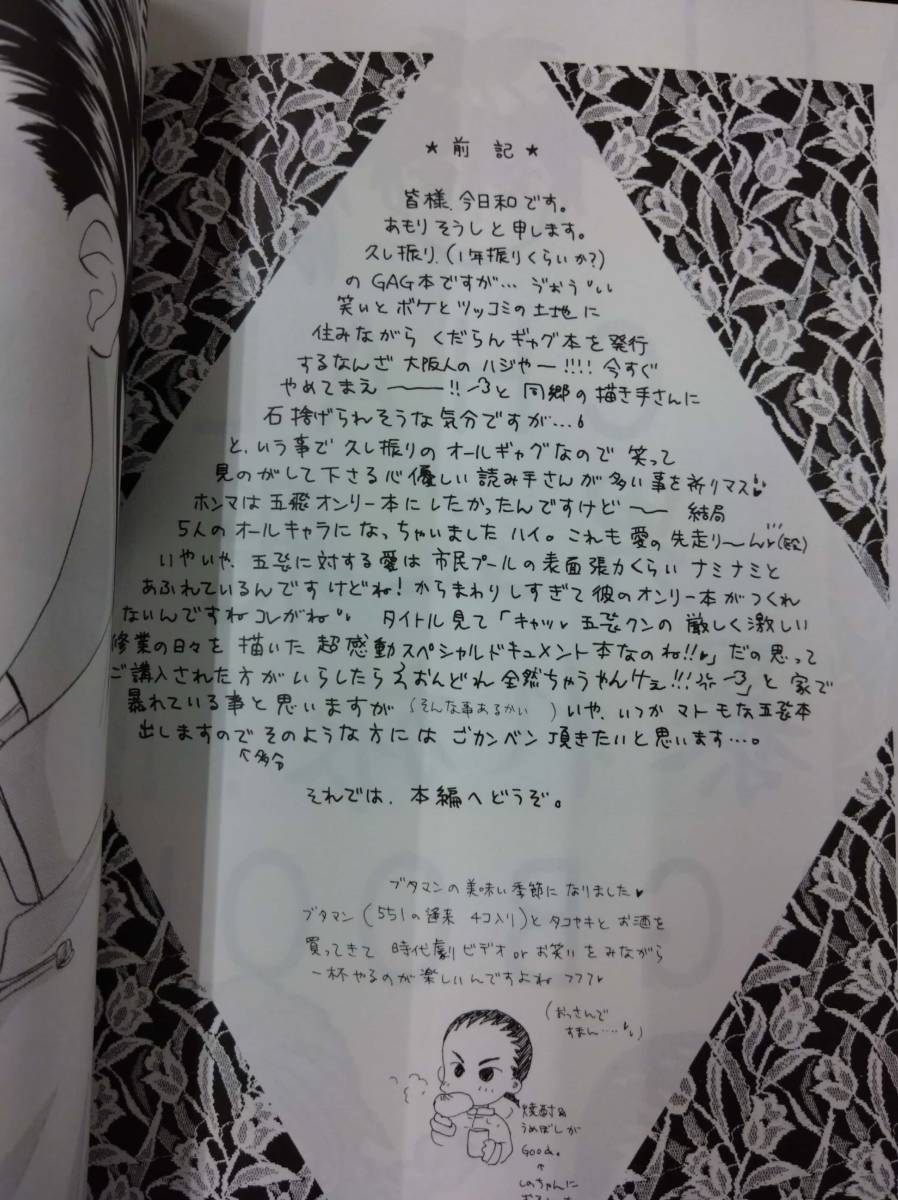 ★ 前記 ★
皆様、今日和です。
あもりそうしと申します。
久し振り、(1年振りくらいか?)
のGAG本ですが…
笑いとボケとツッコミの土地に
住みながら くだらんギャグ本を発行
するなんざ 大阪人のハジやー!!!! 今すぐ
やめてまえ ―――!! と 同郷の描き手さんに
石捨げられそうな気分ですが…
と、いう事で 久し振りの オールギャグなので 笑って
見のがして下さる心優しい 読み手さんが 多い事を祈りマス
ホンマは 五飛オンリー本に したかったんですけど ―― 結局
5人の オールキャラに なっちゃいました ハイ。これも 愛の 先走り〜ん♥
いやいや、五飛に対する愛は 市民プールの 表面張力くらい ナミナミと
あふれているんで すけどね! からまわりしすぎて 彼のオンリー本が つくれ
ないんですね コレがね タイトル見て「キャッ♥ 五飛クンの 厳しく激しい
修業の日々を 描いた 超感動スペシャルドキュメント本なのね!!♥」だの思って
ご講入された方が いらしたら 「おんどれ 全然ちゃうやんけェ!!!」と 家で
暴れている事と 思いますが (そんな事あるかい) いや、いつか マトモな五飛本
出しますので そのような方には ごカンベン 頂きたいと思います…。
↖多分
それでは、本編へどうぞ。
ブタマンの美味い季節に なりました♥
ブタマン (551の蓬来 4コ入り)と タコヤキと お酒を
買ってきて 時代劇ビデオorお笑いをみながら
一杯やるのが楽しいんですよね フフフ♥
(おっさんで
すまん…)
焼酎&
うめぼしが
Good。
↑
しのちゃんに